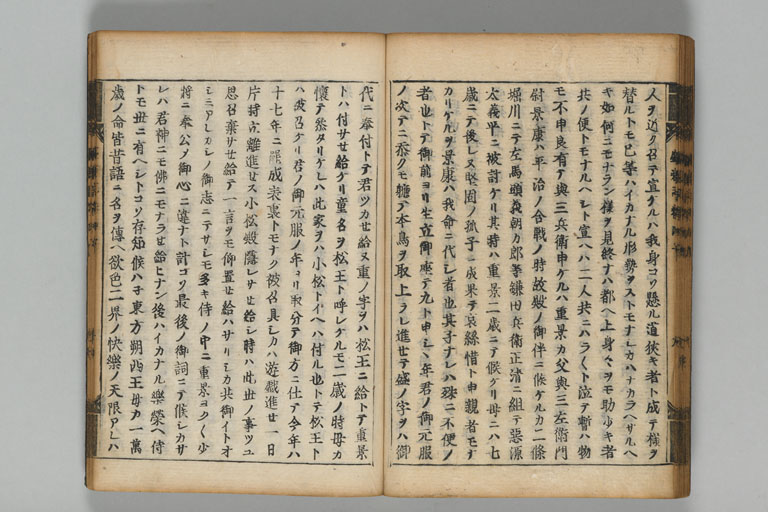 人ヲ近ク召テ宣ケルハ我身コソ懸ル道狭キ者ト成テ様ヲ
替ルトモ己等ハイカナル形勢ヲストモナレカハナカラヘサルヘ
キ如何ニモナラン様ヲ見終ナハ都ヘ上身々ヲモ助ケ者
共ノ便トモナルヘシト宣ヘハ二人共ニハラ〱ト泣テ暫ハ物
モ不申良有テ與三兵衛申ケルハ重景カ父與三左衛門
尉景康ハ平治ノ合戦ノ時故殿ノ御伴ニ候ケルカ二條
堀川ニテ左馬頭義朝カ郎等鎌田兵衛正清ニ組テ悪源
太義平ニ被討ケリ其時ハ重景二歳ニテ候ケリ母ニハ七
歳ニテ後レヌ堅固ノ孤子ニ成果テ哀糸惜ト申親者モナ
カリケルヲ景康ハ我命ニ代シ者也其子ナレハ殊ニ不便ノ
者也トテ御前ヨリ生立御座テ九ト申シヽ年君ノ御元服
ノ次テニ忝クモ軈テ本鳥ヲ取上ラレ進セテ盛ノ字ヲハ御
代ニ奉付トテ君ツカセ給ヌ重ノ字ヲハ松王ニ給トテ重景
トハ付サセ給ケリ童名ヲ松王ト呼レケルモ二歳ノ時母カ
懐テ参タリケレハ此家ヲハ小松トイヘハ付ル也トテ松王ト
ハ被召ケリ君ノ御元服ノ年ヨリ取分テ御方ニ仕テ今年ハ
十七年ニ罷成表裏トモナク被召具シカハ遊戯進セ一日
片時立離進セス小松殿隠レサセ給シ時ハ此世ノ事ツユ
思召棄サセ給テ一言ヲモ仰置セ給ハサリシカ共御イトオ
シミアレカシノ御志ニテサシモ多キ侍ノ中ニ重景ヨク〱少
将ニ奉公ノ御心ニ違ナト計コソ最後ノ御詞ニテ候シカサ
レハ君神ニモ佛ニモナラセ給ヒナン後ハイカナル樂榮ヘ侍
トモ世ニ有ヘシトコソ存知候ハ子東方朔西王母カ一萬
歳ノ命皆昔語ニ名ヲ傳ヘ欲色二界ノ快樂ノ天限アレハ